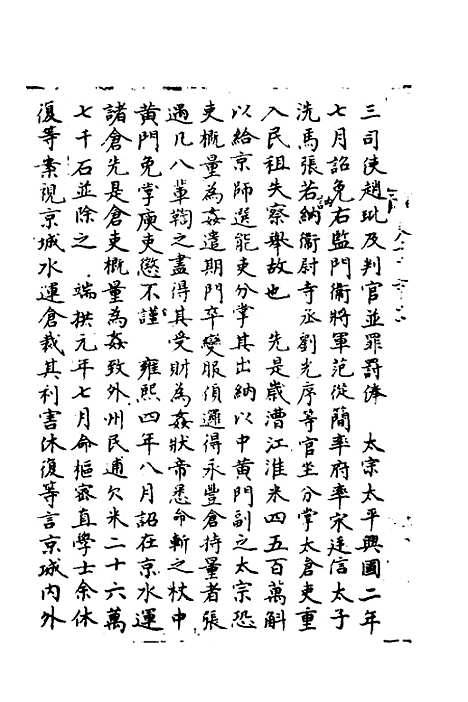 三司使趙玭及判官並罪罰俸　太宗太平興國二年
七月詔免右監門衞將軍范從簡率府率宋廷信太子
洗馬張若納衞尉寺丞劉光序等官坐分掌太倉吏重
入民租失察舉故也　先是歲漕江淮米四五百萬斛
以給京師選能吏分掌其出納以中黃門副之太宗恐
吏概量為姦遣期門卒變服偵邏得永豐倉持量者張
遇凡八輩鞫之盡得其受財為姦狀帝悉命斬之杖中
黃門免掌庾吏懲不謹　雍熙四年八月詔在京水運
諸倉先是倉吏概量為姦致外州民逋欠米二十六萬
七千石並除之　端拱元年七月命樞宻直學士余休
復等案視京城水運倉裁其利害休復等言京城内外